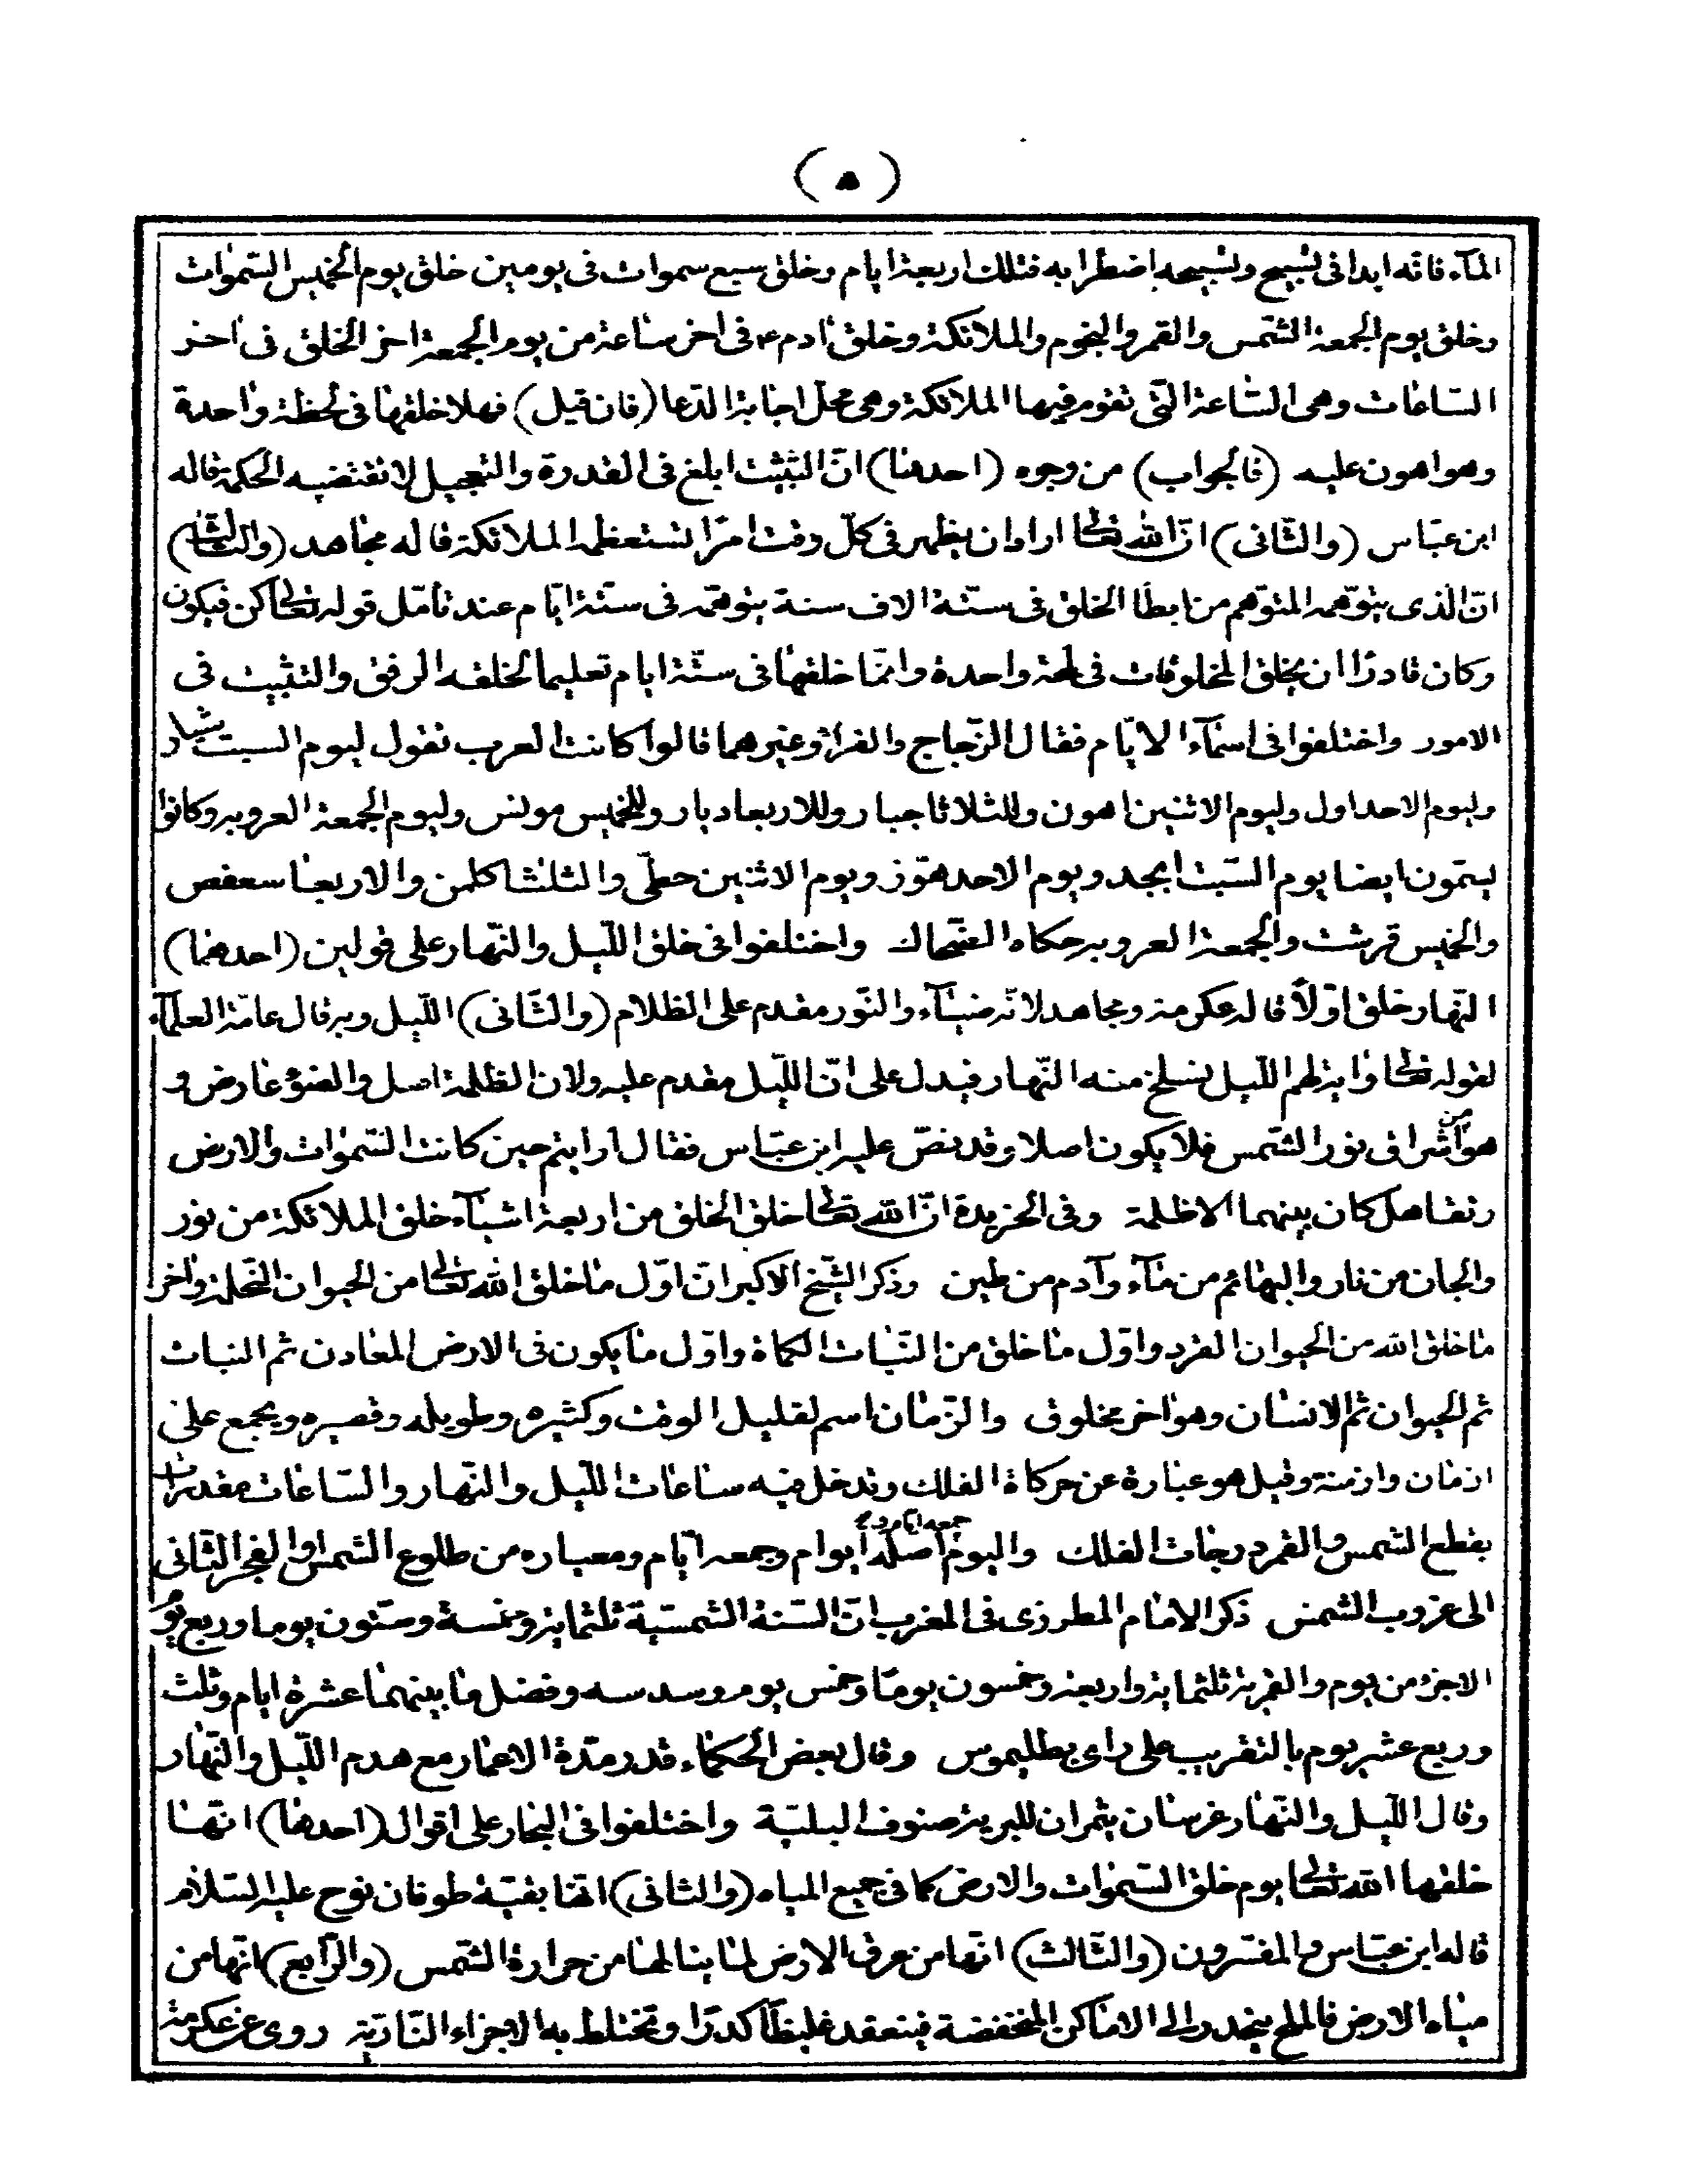 (٥)
المآء فانه ابدا فى تسبيح وتسبيحه اضطرابه فتلك اربعة ايام وخلق سبع سموات فى يومين خلق يوم الخميس السّموات
وخلق يوم الجمعة الشّمس والقمر والنجوم والملائكة وخلق ادم ع فى اخر ساعة من يوم الجمعة اخر الخلق فى اخر
السّاعات وهى السّاعة التى تقوم فيها الملائكة وهى محل اجابة الدّعا (فان قيل) فهلا خلقها فى لحظة واحدة
وهو اهون عليه (فالجواب) من وجوه (احدها) انّ التثبت ابلغ فى القدرة والتعجيل لا تقتضيه الحكمة قاله
ابن عبّاس (والثّانى) انّ الله تعالى اراد ان يظهر فى كلّ وقت امرًا تستعظمه الملائكة قاله مجاهد (والثالث)
انّ الذى يتوّهمه المتوّهم من ابطا الخلق فى ستّة الاف سنة يتوهمه فى ستّة ايّام عند تأمّل قوله تعالى كن فيكون
وكان قادرًا ان يخلق المخلوقات فى لمحة واحدة وانمّا خلقها فى ستّة ايام تعليما لخلقه الرفق والتثبت فى
الامور واختلفوا فى اسمآء الايّام فقال الزّجاج والفرّاء وغيرهما قالوا كانت العرب تقول ليوم السبت شيار
وليوم الاحد اول وليوم الاثنين اهون وللثلاثا جبار وللاربعا دبار وللخميس مونس وليوم الجمعة العروبه وكانوا
يسمّون ايضا يوم السّبت ابجد ويوم الاحد هوّز ويوم الاثنين حطّى والثلثا كلمن والاربعا سعفص
والخميس قرشت والجمعة العروبه حكاه الضّحاك واختلفوا فى خلق اللّيل والنّهار على قولين (احدهما)
النّهار خلق اوّلاً قاله عكرمة ومجاهد لانّه ضيآء والنّور مقدم على الظلام (والثّانى) اللّيل وبه قال عامّة العلمآء
لقوله تعالى واية لهم اللّيل نسلخ منه النّهار فيدل على انّ اللّيل مقدم عليه ولان الظلمة اصل والضوء عارض و
هو من اشراق نور الشّمس فلا يكون اصلا وقد نصّ عليه ابن عبّاس فقال ارايتم حين كانت السّموات والارض
رتقا هل كان بينهما الا ظلمة وفى الخريدة انّ الله تعالى خلق الخلق من اربعة اشيآء خلق الملائكة من نور
والجان من نار والبهائم من مآء وآدم من طين وذكر الشّيخ الاكبر انّ اوّل ما خلق الله تعالى من الحيوان النّحلة واخر
ما خلق الله من الحيوان القرد واوّل ما خلق من النّبات الكماة واوّل ما يكون فى الارض المعادن ثم النبات
ثم الحيوان ثم الانسان وهو اخر مخلوق والزّمان اسم لقليل الوقت وكثيره وطويله وقصيره ويجمع على
ازمان وازمنة وقيل هو عبارة عن حركاة الفلك وتدخل فيه ساعات اللّيل والنّهار والسّاعات مقدرات
بقطع الشمس والقمر درجات الفلك واليوم اصله ايوام وجمعه ايّام ومعياره من طلوع الشمس او الفجر الثّانى
الى غروب الشمس ذكر الامام المطرزى فى المغرب انّ السّنة الشمسيّة ثلثماية وخمسة وستّون يوما وربع يوم
الا جزء من يوم والقمرية ثلثماية واربعة وخمسون يومًا وخمس يوم وسدسه وفضل ما بينهما عشرة ايام وثلث
وربع عشر يوم بالتقريب على راى بطليموس وقال بعض الحكماء قدر مدّة الاعمار مع هدم اللّيل والنّهار
وقال اللّيل والنّهار غرسان يثمران للبرية صنوف البليّة واختلفوا فى البحار على اقوال (احدها) انّها
خلقها الله تعالى يوم خلق السّموات والارض كما فى جميع المياه (والثانى) انّها بقيّة طوفان نوح عليه السّلام
قاله ابن عبّاس والمفسّرون (والثّالث) انّها من عرق الارض لما ينالها من حرارة الشّمس (والرّابع) انّها من
مياه الارض فالملح ينحدر الى الاماكن المنخفضة فينعقد غليظًا كدرًا وتختلط به الاجزاء النّاريّة روى عن عكرمة